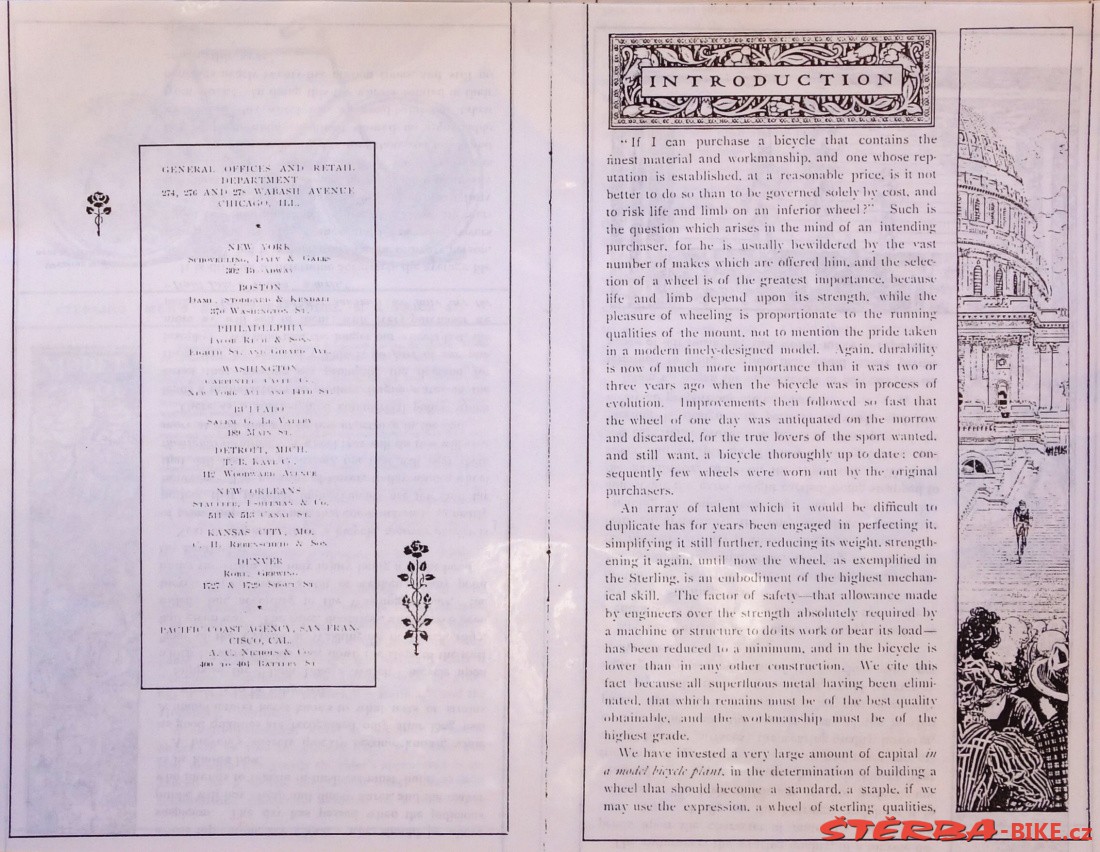 GENERAL OFFICES AND RETAIL
DEPARTMENT
274, 276 AND 278 WABASH AVENUE
CHICAGO, ILL.
NEW YORK
SCHOVERLING, DALY & GALES
302 BROADWAY
BOSTON
DAME, STODDARD & KENDALL
370 WASHINGTON ST.
PHILADELPHIA
JACOB REED & SONS
EIGHTH ST. AND GIRARD AVE.
WASHINGTON
CARPENTER CYCLE CO.
NEW YORK AVE. AND 14TH ST.
BUFFALO
SALEM G. LE VALLEY
189 MAIN ST.
DETROIT, MICH.
T. B. 
112 WOODWARD AVENUE
NEW ORLEANS
STAUFFER, ESHLEMAN & CO.
511 & 513 CANAL ST.
KANSAS CITY, MO.
C. H. & SON
DENVER
ROBT. GERWING
1727 & 1729 STOUT ST.
PACIFIC COAST AGENCY, SAN FRAN-
CISCO, CAL.
A. C. NICHOLS & CO.
400 TO 404 BATTERY ST.
INTRODUCTION
"If I can purchase a bicycle that contains the
finest material and workmanship, and one whose rep-
utation is established, at a reasonable price, is it not
better to do so than to be governed solely by cost, and
to risk life and limb on an inferior wheel?" Such is
the question which arises in the mind of an intending
purchaser, for he is usually bewildered by the vast
number of makes which are offered him, and the selec-
tion of a wheel is of the greatest importance, because
life and limb depend upon its strength, while the
pleasure of wheeling is proportionate to the running
qualities of the mount, not to mention the pride taken
in a modern finely-designed model. Again, durability
is now of much more importance than it was two or
three years ago when the bicycle was in process of
evolution. Improvements then followed so fast that
the wheel of one day was antiquated on the morrow
and discarded, for the true lovers of the sport wanted,
and still want, a bicycle thoroughly up to date; con-
sequently few wheels were worn out by the original
purchasers.
An array of talent which it would be difficult to
duplicate has for years been engaged in perfecting it,
simplifying it still further, reducing its weight, strength-
ening it again, until now the wheel, as exemplified in
the Sterling, is an embodiment of the highest mechan-
ical skill. The factor of safety—that allowance made
by engineers over the strength absolutely required by
a machine or structure to do its work or bear its load—
has been reduced to a minimum, and in the bicycle is
lower than in any other construction. We cite this
fact because all superfluous metal having been elimi-
nated, that which remains must be of the best quality
obtainable, and the workmanship must be of the
highest grade.
We have invested a very large amount of capital in
a model bicycle plant, in the determination of building a
wheel that should become a standard, a staple, if we
may use the expression, a wheel of sterling qualities,
ŠTĚRBA-BIKE.cz